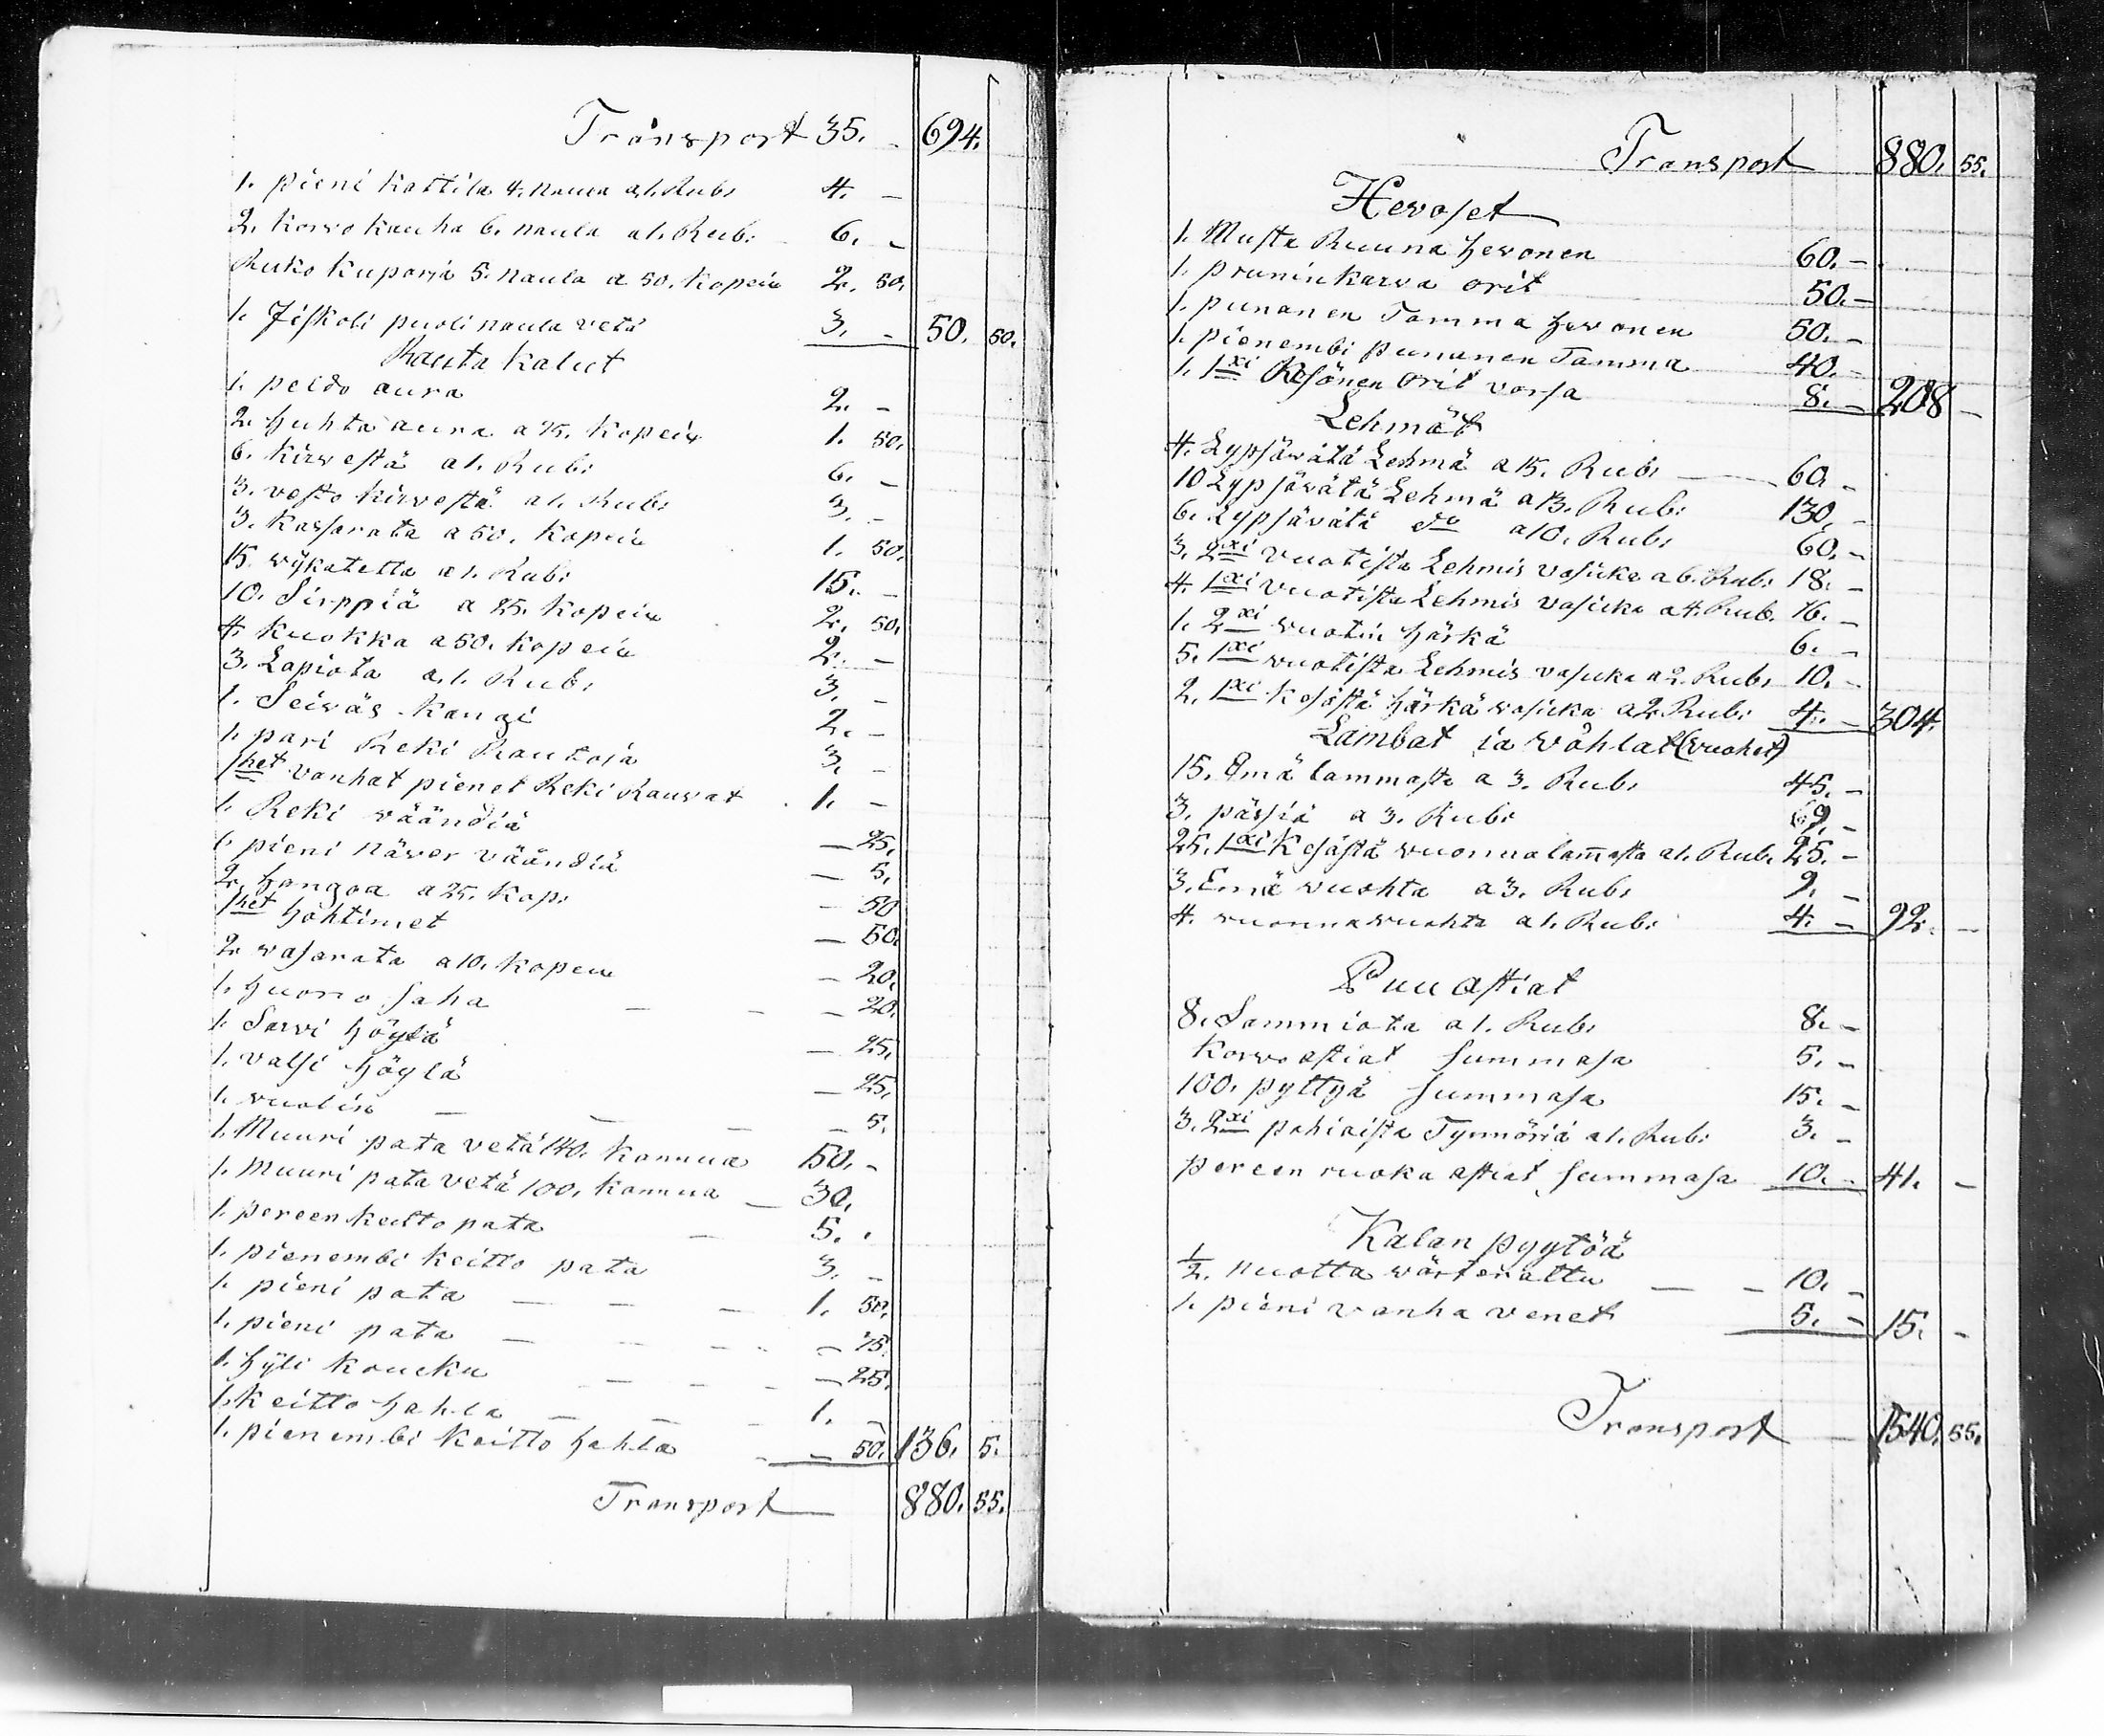 Transport 35. - 694.
1. pieni kattila 4. naula a1. Rub: 4. -
2. korvo kauha 6. naula a1. Rub: 6. -
Ruko kuporia 5. naula a 50. kopein 2. 50.
1. Jiskoli puoli naula vetä 3. - 50. 50.
Rauta kalut
1. peldo aura 2. -
2. huhta aura a 75. kopein 1. 50.
6. kirvestä a1. Rub: 6. -
3. vesto kirvestä a1. Rub: 3. -
3. kassarata a 50. kopein 1. 50.
15. wýkatetta a 1. Rub: 15. -
10. Sirppiä a 25. kopein 2. 50.
4. kuokka a 50. kopein 2. -
3. Lapiota a.1. Rub: 3. -
1. Seiväs kangi 2. -
1. pari Reki Rautoja 3. -
1het vanhat pienet Reki Rauvat 1. -
1. Reki väändiä — 25.
1. pieni näver väändiä — 5.
2. hangoa a 25. kop: - 50
1het hohtimet — 50.
2. vasarata a10. kopein - 20.
1. huono saha - 20.
1. Sarvi höylä — 25.
1. valsi höylä — 25.
1. vuolin — 5.
1. Muuri pata vetä 140. kannua 50. -
1. muuri pata vetä 100. kannua — 30.
1. pereen keitto pata 5. .
1. pienembi keitto pata 3. -
1. pieni pata — 1. 50.
1. pieni pata — 75.
1. hýli koucku — 25.
1. keitto hahla — 1. -
1. pienembi keitto hahla — 50. 136. 5.
Transport — 880. 55.
Transport 880. 55.
Hevoset
1. Musta Ruuna hevonen 60. -
1. pruninkarva orit 50. -
1. punanen Tamma hevonen 50. -
1. pienembi punanen Tamma 40. -
1. 1xi Kesönen orit varsa 8. - 208 -
Lehmät
4. Lypsävätä Lehmä a 15. Rub: — 60. -
10 Lypsävätä Lehmä a 13. Rub: 130. -
6. Lypsävätä do a10. Rub: 60. -
3. 2xi vuotista Lehmis vasicka a 6. Rub: 18. -
4. 1xi vuotista Lehmis vasicka a 4. Rub. 16. -
1. 2xi vuotin härkä 6. -
5. 1xi vuotista Lehmis vasicka a 2. Rub: 10. -
2. 1xi kesästä härkä vasicka a 2. Rub: 4. - 304.
Lambat ia wåhlat (vuohet)
15. Emä lammasta a 3. Rub: 45. -
3. pässiä a 3. Rub: 9. -
25. 1xi Kesästä vuonna lam̄asta a1. Rub. 25. -
3. Emä vuohta a 3. Rub: 9. -
4. vuonna vuohta a 1. Rub: 4. - 92. -
Puu astiat
8. Sammiota a 1. Rub: 8. -
Korvo astiat summasa 5. -
100. pyttyä summasa 15. -
3. 2xi pohiaista Tynnöriä a1. Rub: 3. -
pereen ruoka astiat summasa 10. - 41. -
Kalan pyytöä
1/2. nuotta värkenättu — - 10. -
1. pieni vanha venet 5. - 15. -
Transport — 1540. 55.